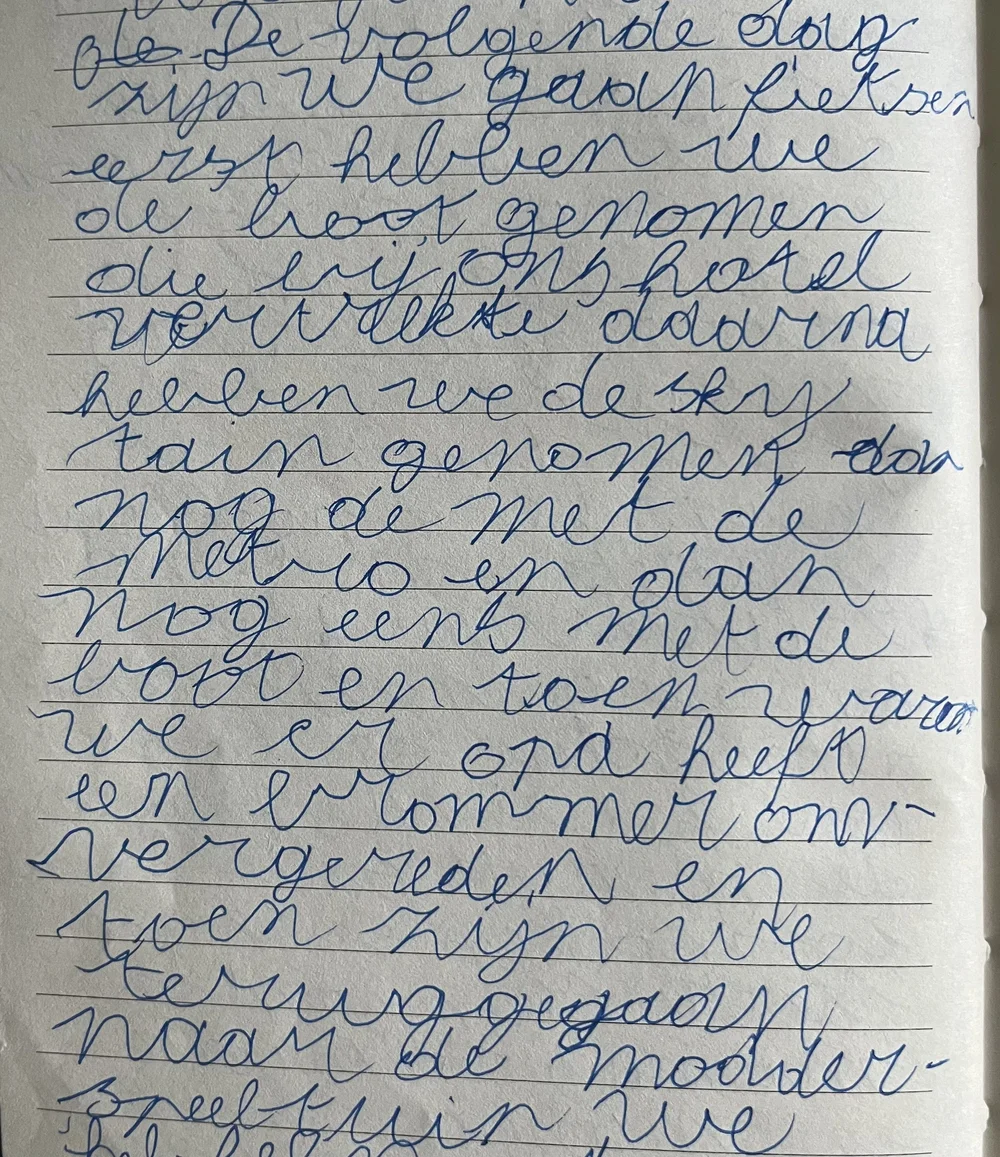 De volgende dag
zijn we gaan fietsen
eerst hebben we
de boot genomen
die bij ons hotel
vertrekte daarna
hebben we de sky
tain genomen dan
nog de met de
metro en dan
nog eens met de
boot en toen waren
we er opa heeft
een brommer omv-
vergereden en
toen zijn we
teruggegaan
naar de modder-
speeltuin we